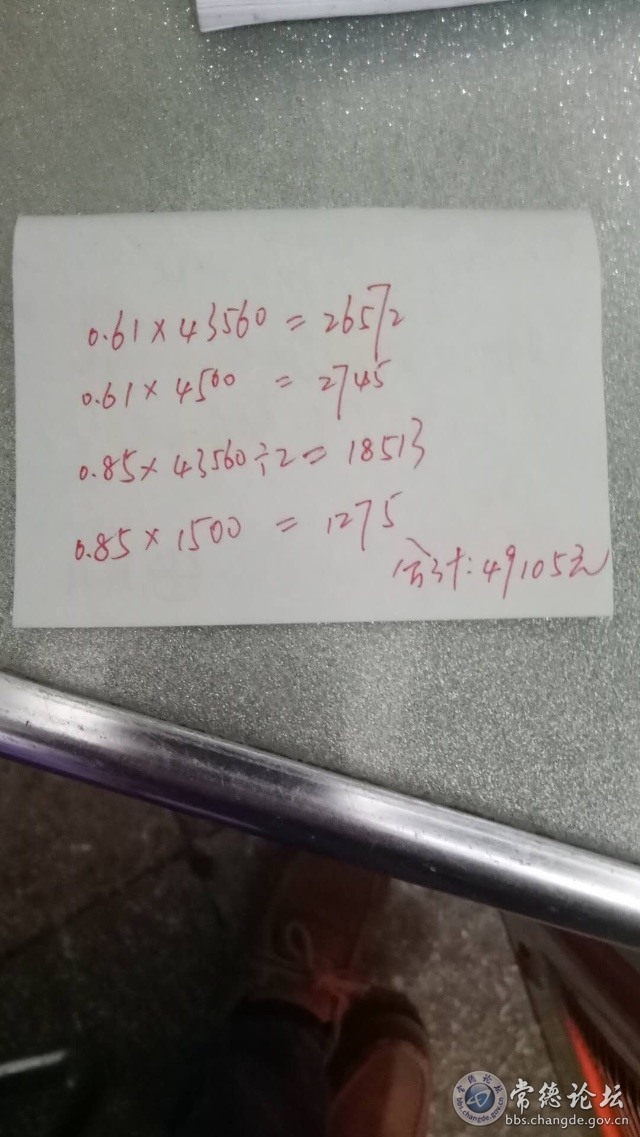 0.61×43560=26572
0.61×4500=2745
0.85×43560÷2=18513
0.85×1500=1275
合计:49105元
常德论坛
bbs.changde.gov.cn